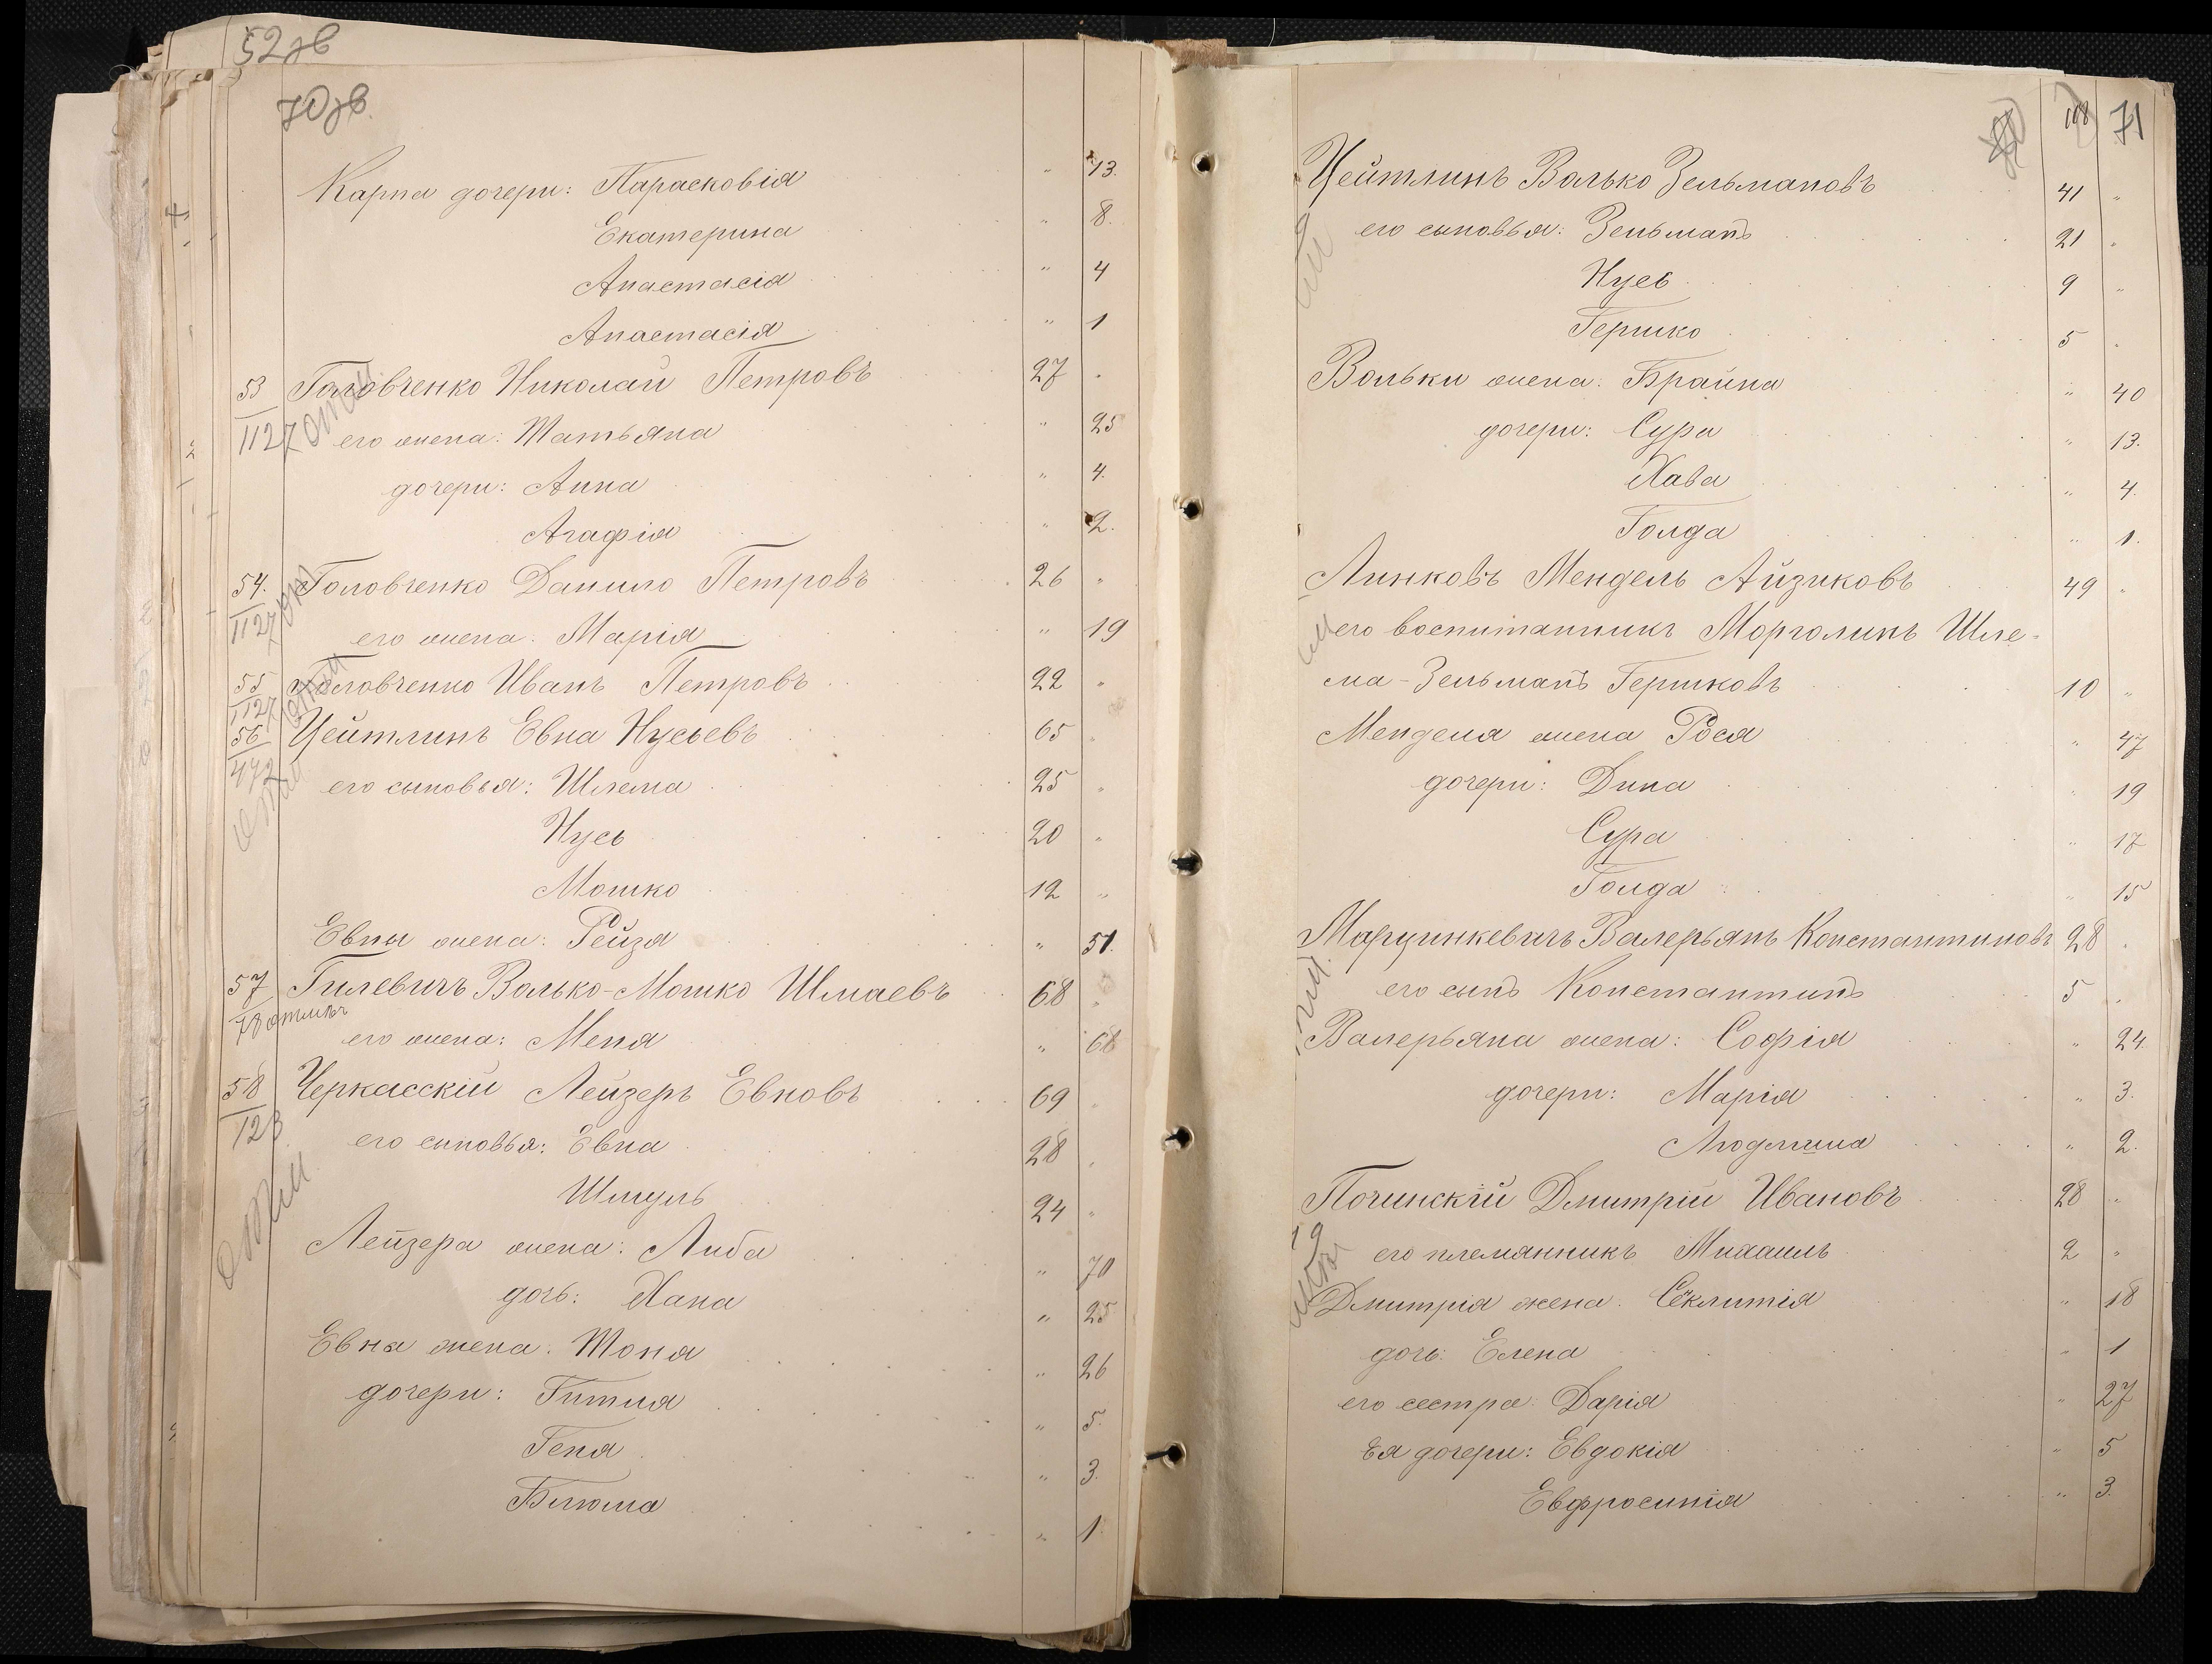 52 зв
70 зв.
Карпа дочери: Парасковія " 13.
Екатерина " 8.
Анастасія " 4
Анастасія " 1
53 Головченко Николай Петровъ 27 "
1127 его жена: Татьяна " 25
дочери: Анна " 4.
Агафія " 2.
54. Головченко Данило Петровъ 26 "
1127 его жена: Марія " 19
55 Головченко Иванъ Петровъ 22 "
1127
56 Цейтлинъ Евна Нусьевъ 65 "
472 его сыновья: Шлема 25 "
Нусь 20 "
Мошко 12 "
Евны жена: Рейзя " 51.
57 Гилевичъ Волько-Мошко Шмаевъ 68 "
78 его жена: Меня " 68
58 Черкасскій Лейзеръ Евновъ 69 "
123 его сыновья: Евна 28 "
Шмуль 24 "
Лейзера жена: Либа " 70
дочь: Хана " 25
Евна жена: Тоня " 26
дочери: Гитля " 5.
Геня " 3.
Блюма " 1
108 71
Цейтлинъ Волько Зельмановъ 41 "
его сыновья: Зельманъ 21 "
Нусь 9 "
Гершко 5 "
Вольки жена: Брайна " 40
дочери: Сура " 13.
Хава " 4.
Голда " 1.
Линковъ Мендель Айзиковъ 49 "
его воспитанникъ Морголинъ Шле-
ма-Зельманъ Гершковъ 10 "
Менделя жена Рося " 47
дочери: Дина " 19
Сура " 17
Голда " 15
Марцинкевичъ Валерьянъ Константиновъ 28 "
его сынъ Константинъ 5 "
Валерьяна жена: Софія " 24.
дочери: Марія " 3.
Людмила " 2.
Починскій Дмитрій Ивановъ 28 "
его племянникъ Михаилъ 2 "
Дмитрія жена: Секлитія " 18
дочь: Елена " 1
его сестра: Дарія " 27
Ея дочери: Евдокія " 5
Евфросинія " 3.